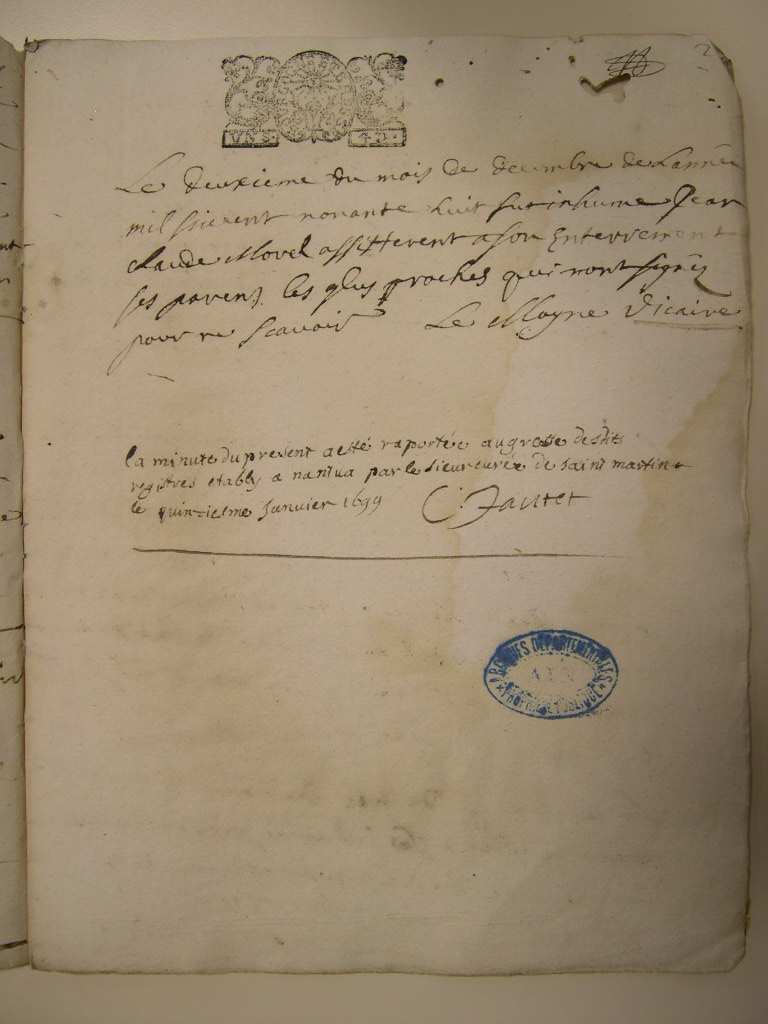 2
VN S. 4 D.
Le deuxieme du mois de decembre de Lannee
mil sixcent nonante huit fut inhume Jean
claude Morel assisterent a son Enterrement
ses parens les plus proches qui nont signes
pour ne scavoir Le Moyne Vicaire
la minute du present a esté raportée au greffe desdits
registres etablÿ a nantua par le sieur curée de saint martin
le quinziesme Janvier 1699
ARCHIVES DÉPARTEMENTALES
AIN
PROPRIÉTÉ PUBLIQUE